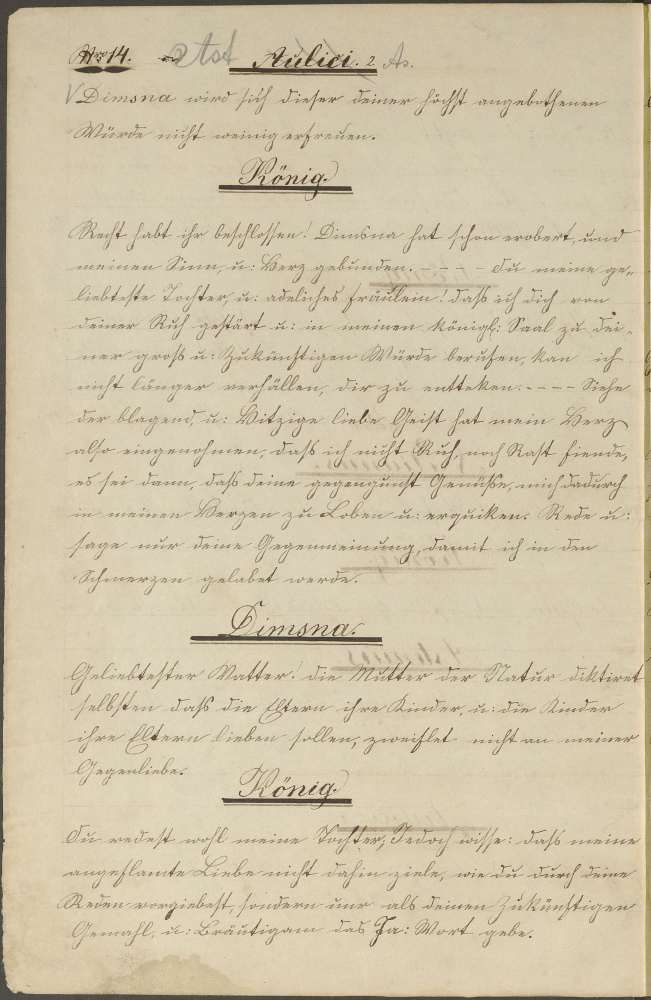 Nro 14. 2 Act Aulici. 2. As.
Dimsna wird sich dieser deiner höchst angebothenen
Würde nicht weinig erfreuen.
König.
Recht habt ihr beschlossen! Dimsna hat schon erobert, und
meinen Sinn, u: Herz gebunden. - - - - Du meine ge„
liebteste Tochter, u: adeliches Fräulein! daß ich dich von
deiner Ruh gestärt u: in meinen königl: Saal zu dei„
ner groß u: Zukünftigen Würde berufen, kan ich
nicht länger verhällen, dir zu entteken. - - - - Siehe
der blagend, u: Witzige liebe Geist hat mein Herz
also eingenohmen, daß ich nicht Ruh, noch Rast fiende,
es sei dann, daß deine gegengunst Genüße, mich dadurch
in meinen Herzen zu Loben u: erquiken. Rede u:
sage nur deine Gegenmeinung, damit ich in den
Schmerzen gelabet werde.
Dimsna.
Geliebtester Vatter! die Mutter der Natur diktiret
selbsten daß die Eltern ihre Kinder, u: die Kinder
ihre Eltern lieben sollen, zweiflet nicht an meiner
Gegenliebe.
König.
Du redest wohl meine Tochter, Jedoch wisse: daß meine
angeflamte Liebe nicht dahin ziele, wie du durch deine
Reden vorgiebest, sondern mir als deinen Zukünftigen
Gemahl, u: Bräutigam das Ja: Wort gebe.